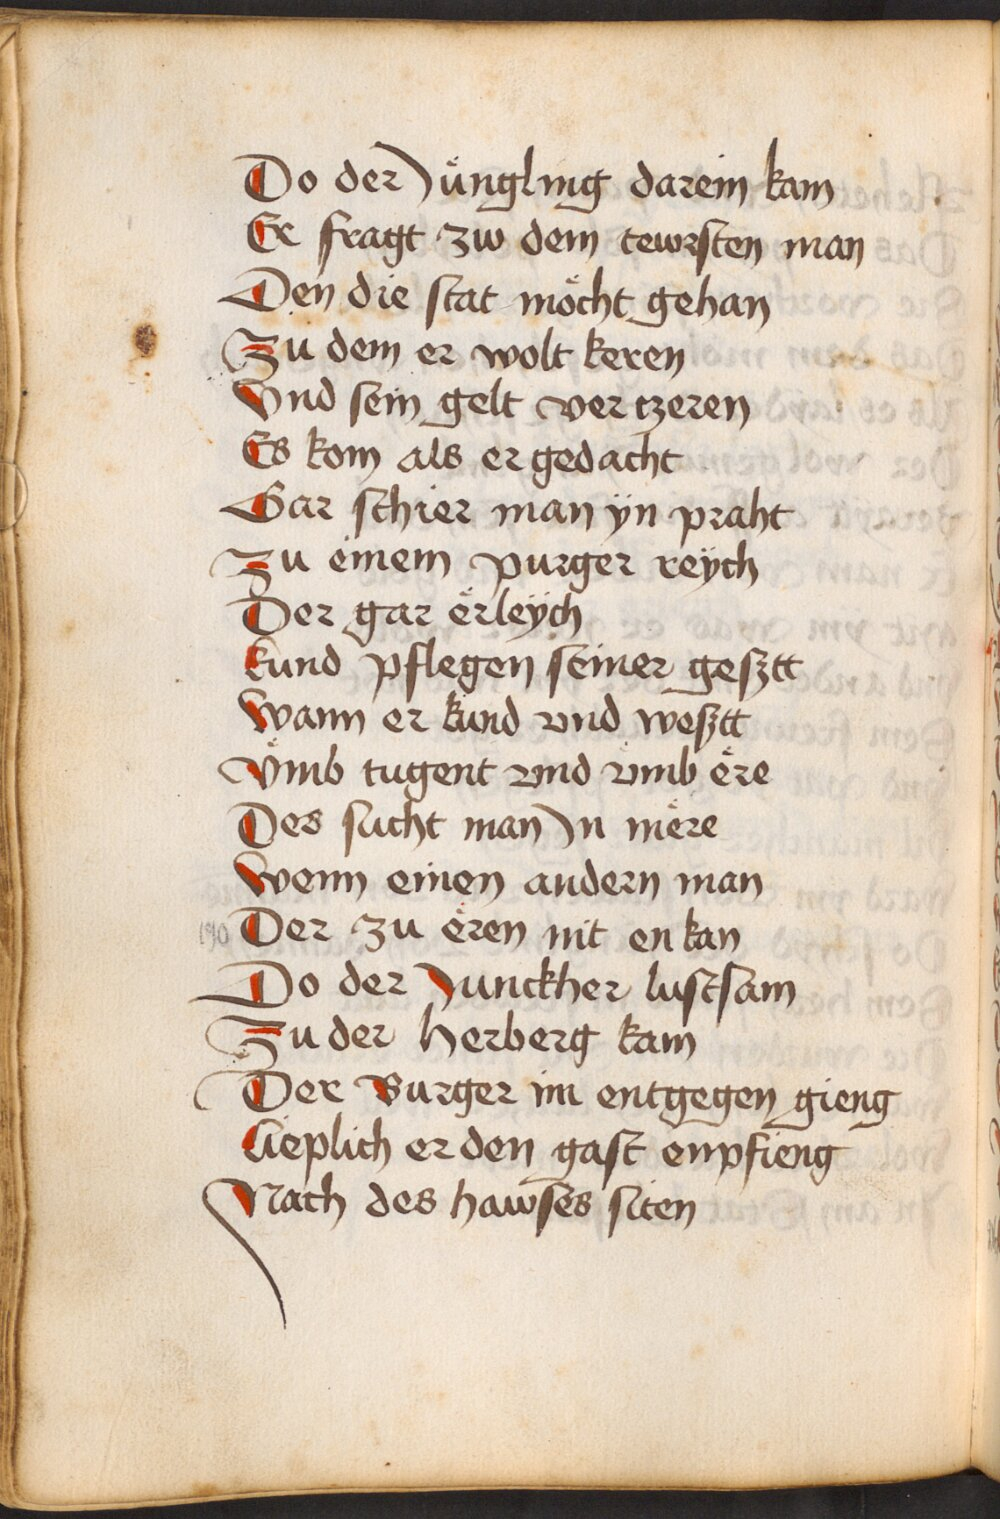 Do der Jüngling darein kam
Er fragt zw dem tewrsten man
Den die stat möcht gehan
Zu dem er wolt keren
Vnd sein gelt vertzeren
Es kom als er gedacht
Gar schier man ÿn praht
Zu einem purger reÿch
Der gar ërleÿch
kund pflegen seiner gesztt
Wann er kund vnd wesztt
Vmb tugent vnd vmb ëre
Des sucht man Jn mëre
Wenn einen andern man
190 Der zu ëren nit enkan
Do der Junckher lustsam
Zu der herberg kam
Der Burger im entgegen gieng
Lieplich er den gast enpfieng
Nach des hawses siten